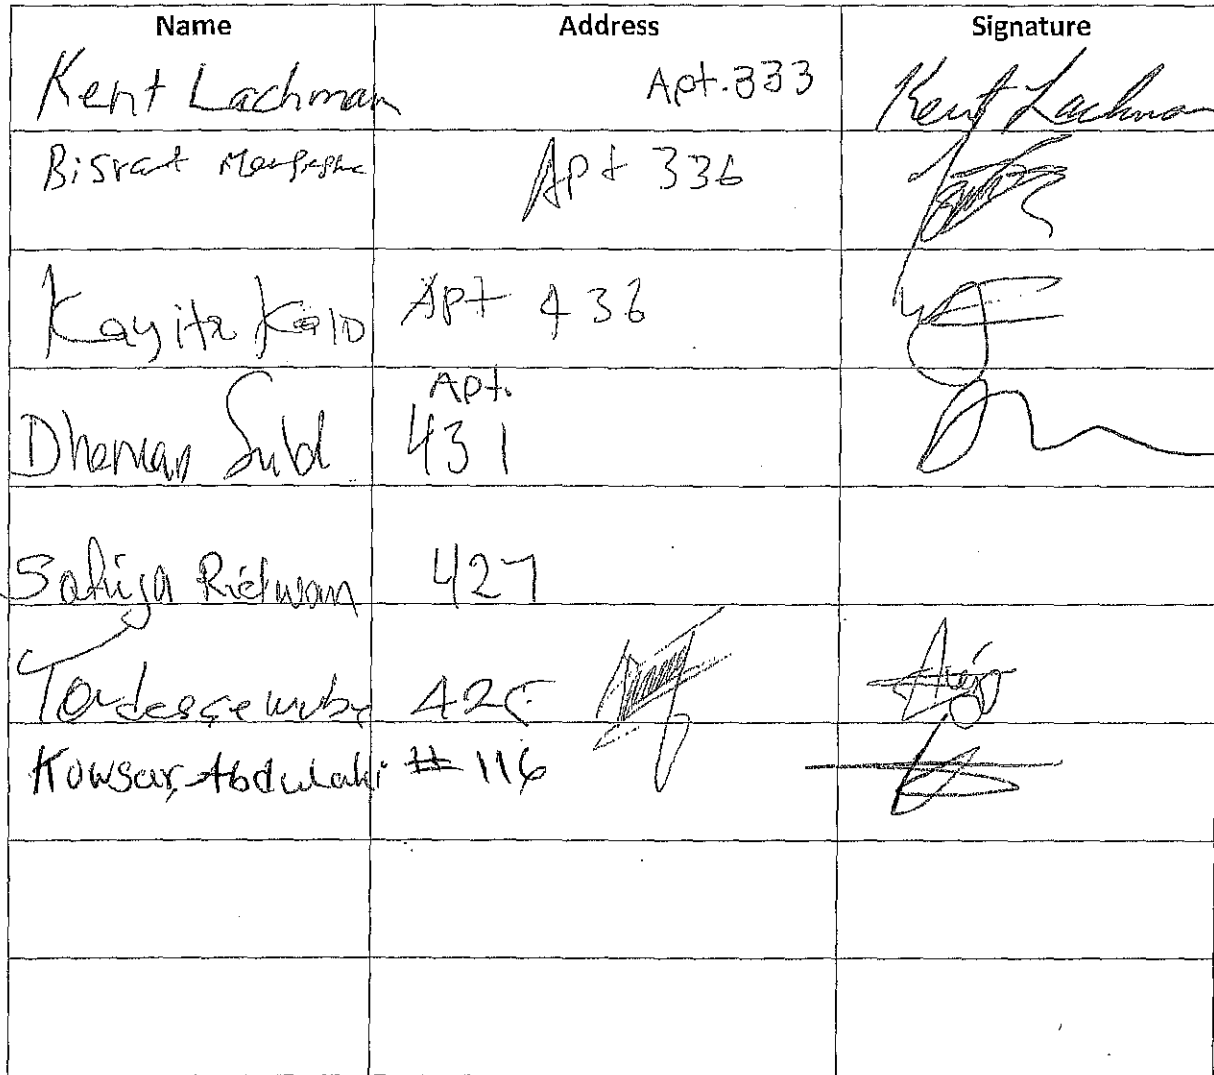 Name Address Signature
Kent Lachman Apt.333 Kent Lachman
Bisrat Apt 336
Kayitz Kalo Apt 436
Apt.
Dhenan 431
Safiya Ridwan 427
425
Kowsar Abdulahi # 116